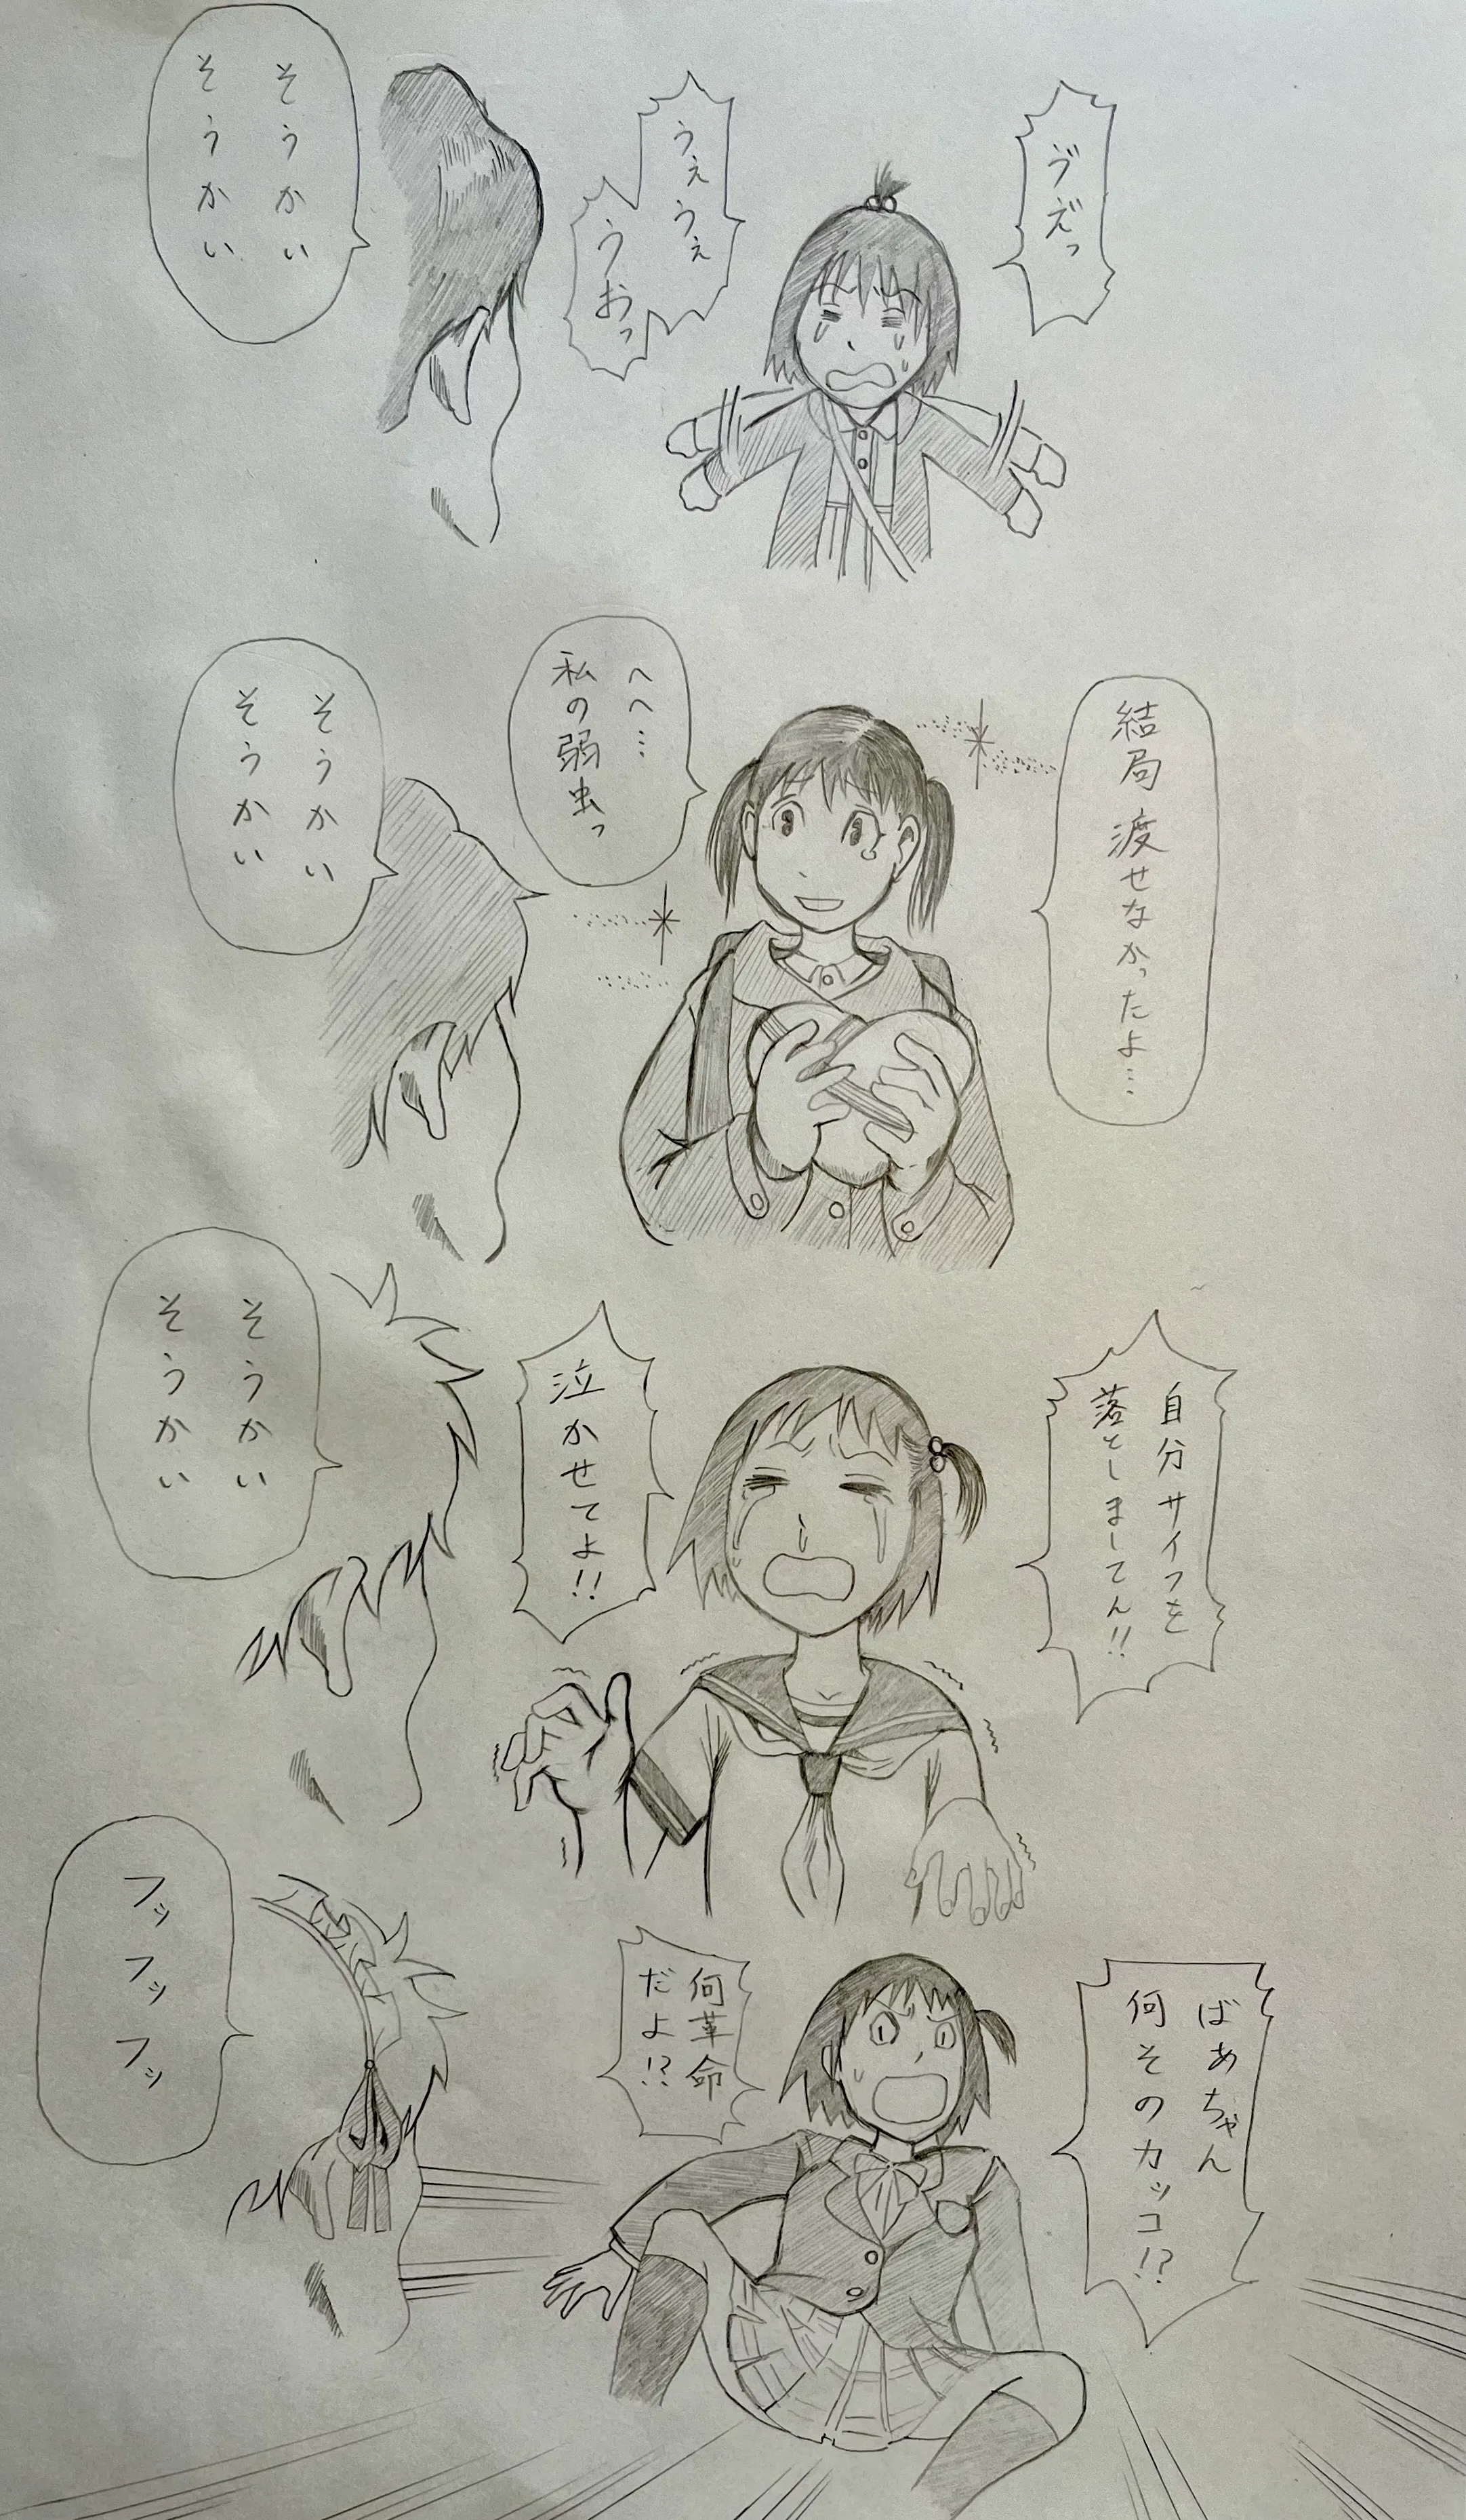 ヴえ゛っ
うぇうぇ
うおっ
そうかい
そうかい
結局渡せなかったよ…
へへ…
私の弱虫っ
そうかい
そうかい
自分サイフを
落としましてん!!
泣かせてよ!!
そうかい
そうかい
ばあちゃん
何そのカッコ!?
何革命
だよ!?
フッフッフッ